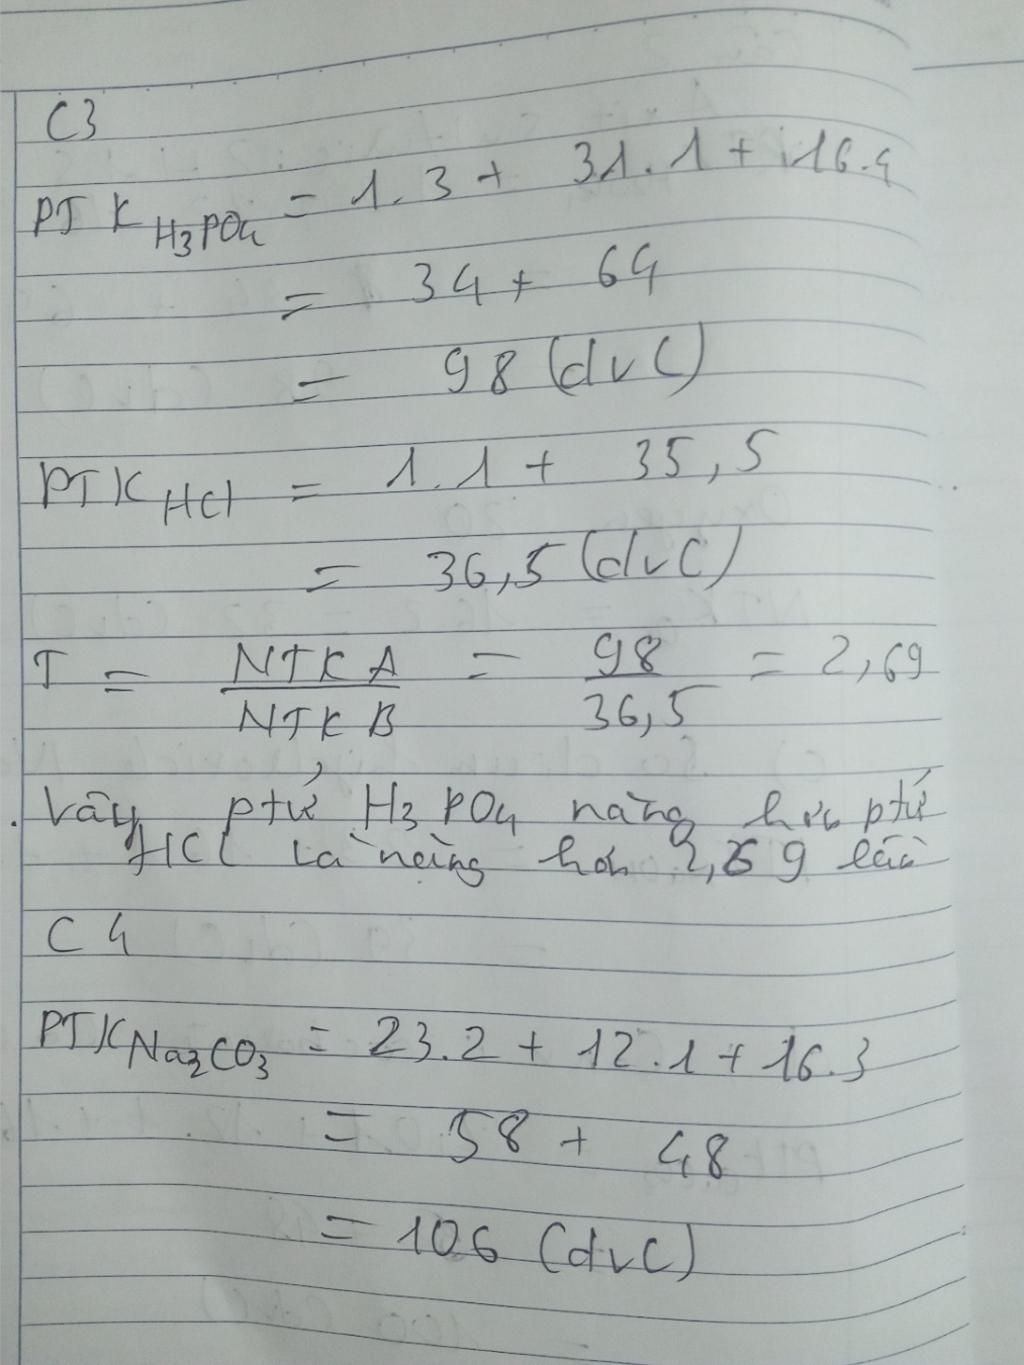 C3
PTK H3PO4 = 1.3 + 31.1 + 16.4
= 34 + 64
= 98 (dvC)
PTK HCl = 1.1 + 35,5
= 36,5 (dvC)
T = NTK A / NTK B = 98 / 36,5 = 2,69
Vậy ptử H3PO4 nặng hơn ptử
HCl là nặng hơn 2,69 lần
C4
PTK Na2CO3 = 23.2 + 12.1 + 16.3
= 58 + 48
= 106 (dvC)